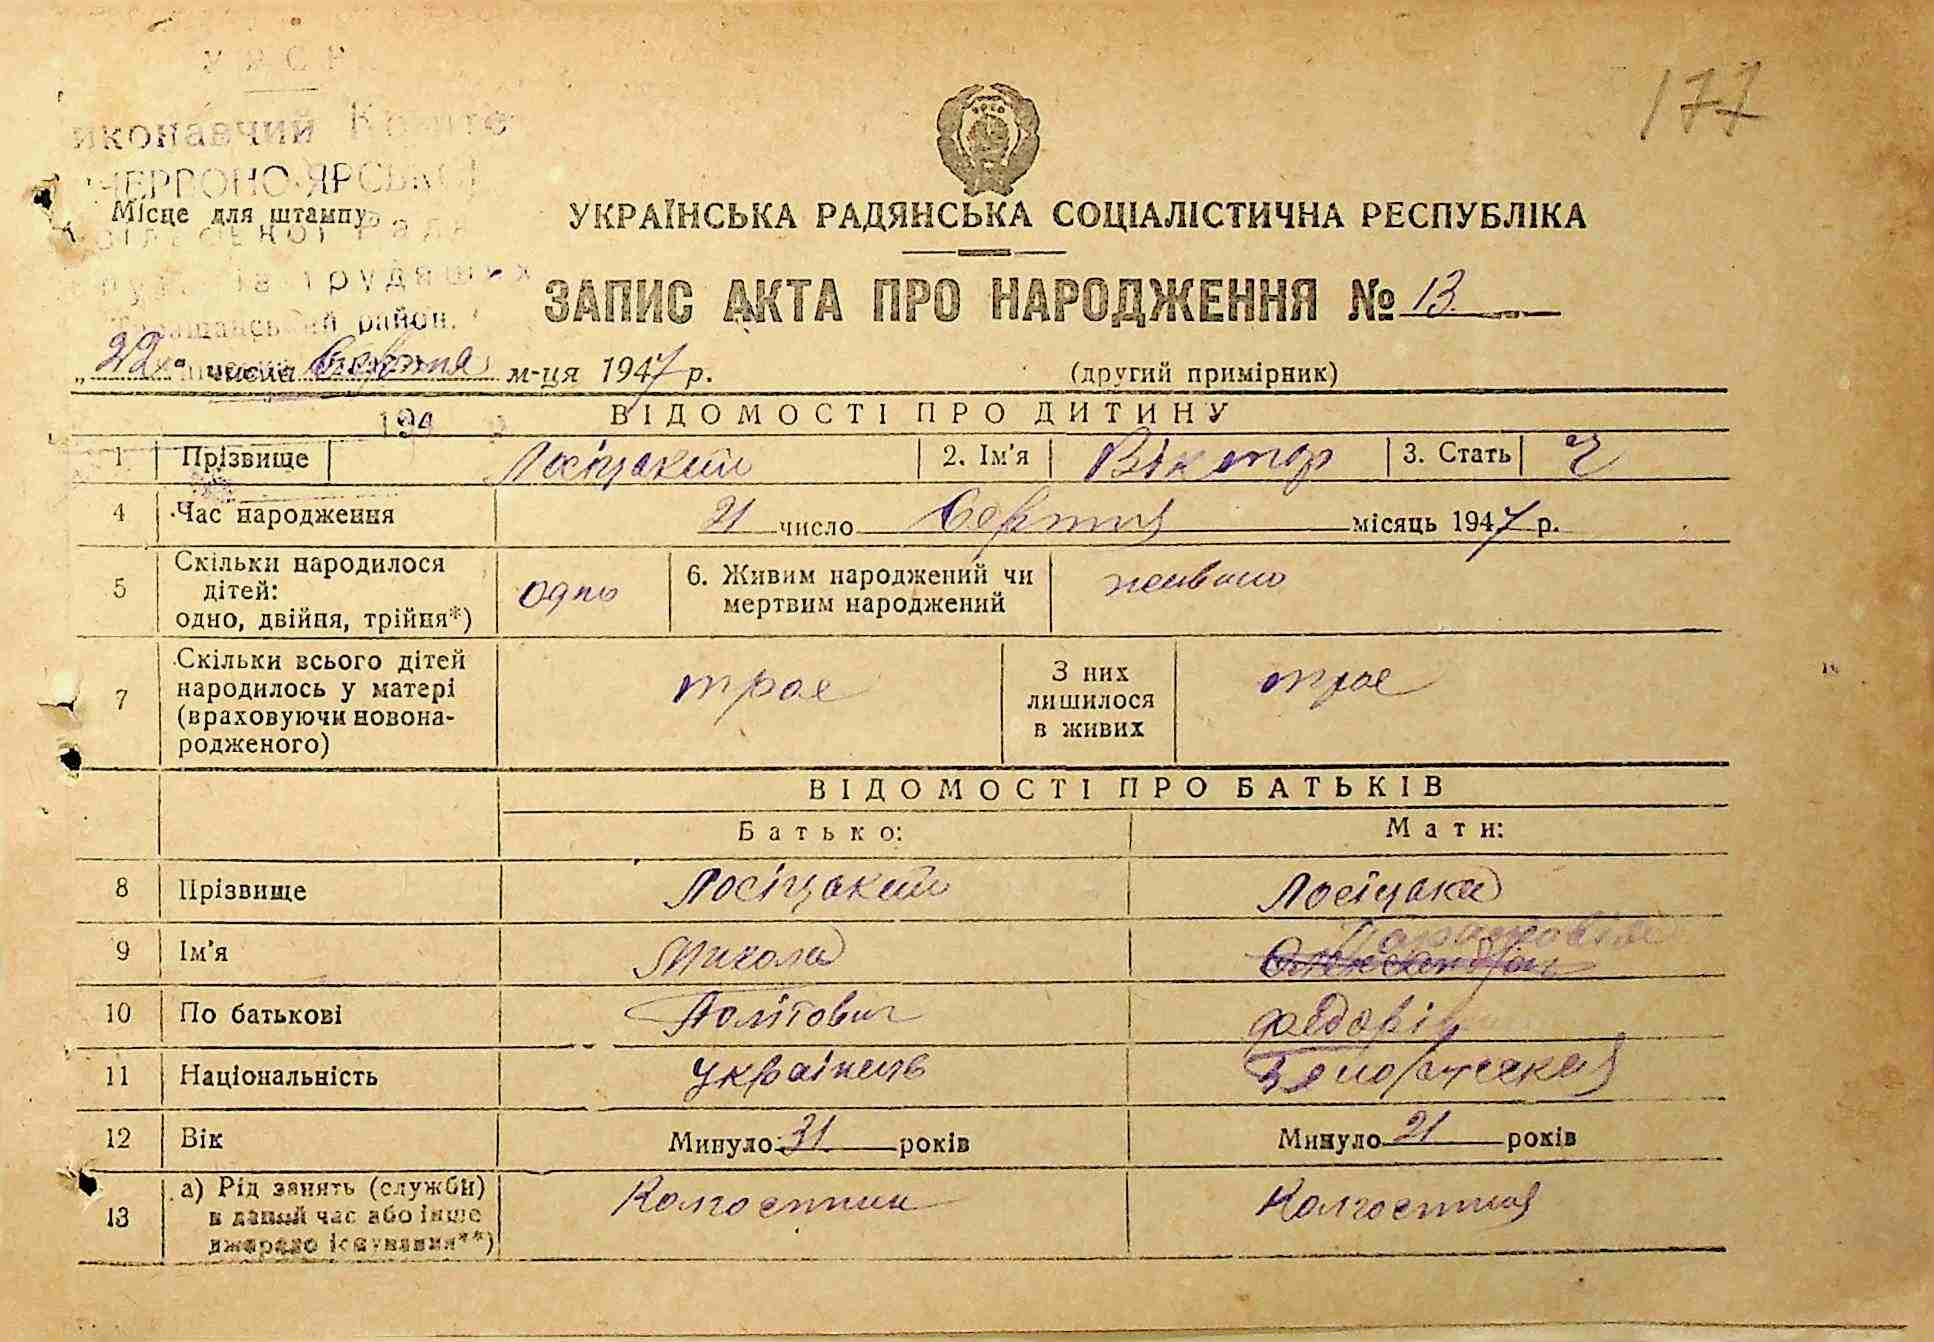 177
УРСР
иконавчий Коміте
ЧЕРВОНО-ЯРСЬКОЇ
Місце для штампу
трудящих
Таращанський район,
УКРАЇНСЬКА РАДЯНСЬКА СОЦІАЛІСТИЧНА РЕСПУБЛІКА
ЗАПИС АКТА ПРО НАРОДЖЕННЯ № 13
„22“ числа Серпня м-ця 1947 р. (другий примірник)
194
ВІДОМОСТІ ПРО ДИТИНУ
1 Прізвище Лосіцький 2. Ім'я Віктор 3. Стать Ч
4 Час народження 21 число Серпня місяць 1947 р.
5 Скільки народилося дітей: одно, двійня, трійня*) одно 6. Живим народжений чи мертвим народжений живим
7 Скільки всього дітей народилось у матері (враховуючи новонародженого) троє З них лишилося в живих троє
ВІДОМОСТІ ПРО БАТЬКІВ
Батько: Мати:
8 Прізвище Лосіцький Лосіцька
9 Ім'я Микола
10 По батькові
11 Національність українець
12 Вік Минуло 31 років Минуло 21 років
13 а) Рід занять (служби) в даний час або інше джерело існування**) Колгоспник Колгоспниця